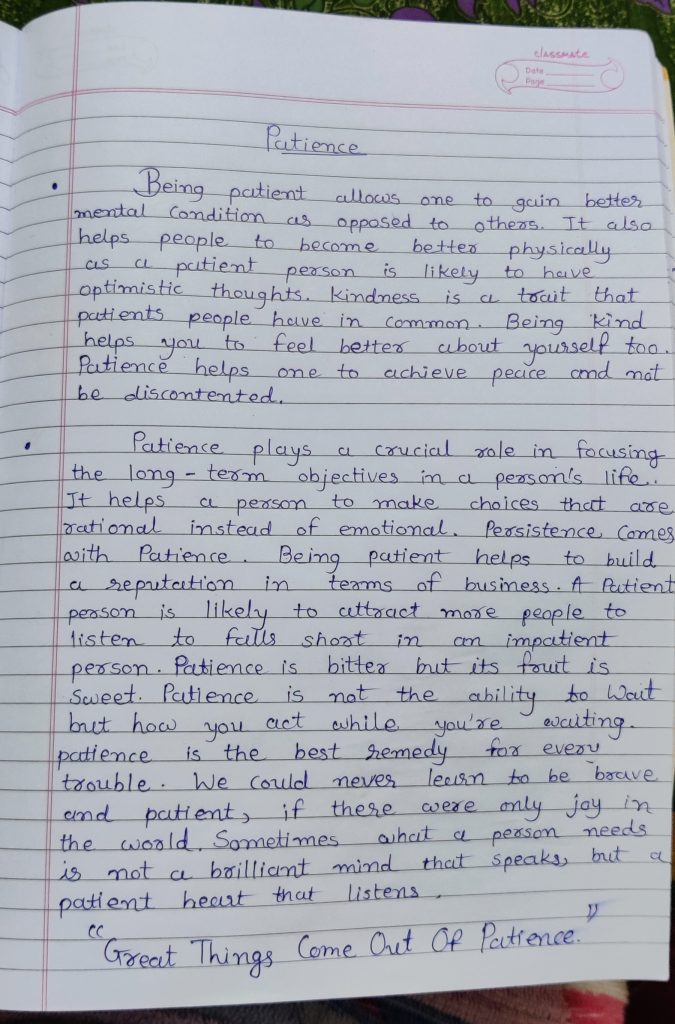 classmate
Date
Page
Patience
• Being patient allows one to gain better
mental condition as opposed to others. It also
helps people to become better physically
as a patient person is likely to have
optimistic thoughts. Kindness is a trait that
patients people have in common. Being kind
helps you to feel better about yourself too.
Patience helps one to achieve peace and not
be discontented.
• Patience plays a crucial role in focusing
the long-term objectives in a person's life.
It helps a person to make choices that are
rational instead of emotional. Persistence comes
with Patience. Being patient helps to build
a reputation in terms of business. A Patient
person is likely to attract more people to
listen to falls short in an impatient
person. Patience is bitter but its fruit is
sweet. Patience is not the ability to Wait
but how you act while you're waiting.
patience is the best remedy for every
trouble. We could never learn to be brave
and patient, if there were only joy in
the world. Sometimes what a person needs
is not a brilliant mind that speaks, but a
patient heart that listens.
"Great Things Come Out Of Patience."